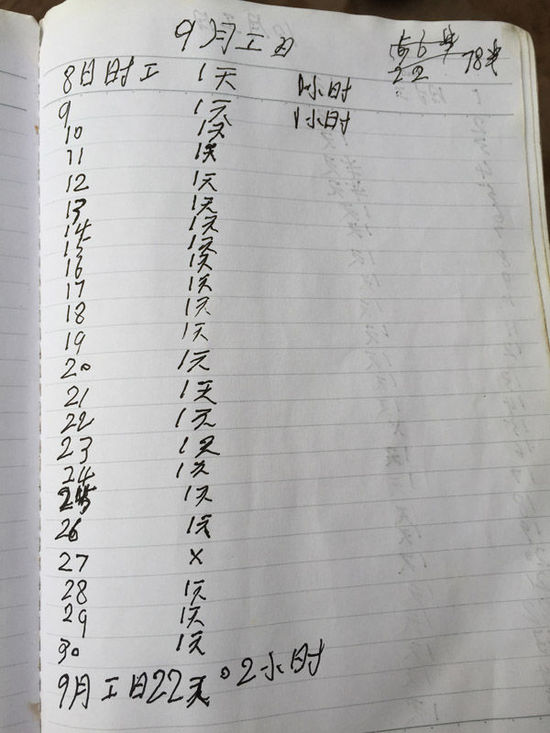 9月工日
22 78半
8日时工 1天 1小时
9 1天 1小时
10 1天
11 1天
12 1天
13 1天
14 1天
15 1天
16 1天
17 1天
18 1天
19 1天
20 1天
21 1天
22 1天
23 1天
24 1天
25 1天
26 1天
27 ×
28 1天
29 1天
30 1天
9月工日22天。2小时